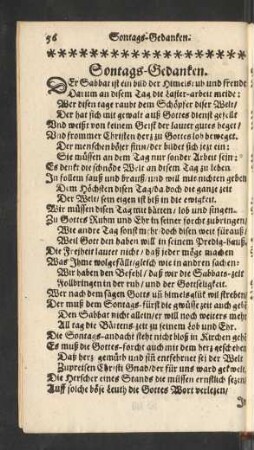 56 Sontags-Gedanken.
Sontags-Gedanken.
DEr Sabbat ist ein bild der Himels-ruh und freude
Darum an disem Tag die laster-arbeit meide:
Wer disen tage raubt dem Schöpfer diser Welt/
Der hat sich mit gewalt auff Gottes dienst gestellt
Und weißt von keinem Geist der lauter gutes heget/
Und frommer Christen hertz zu Gottes lob beweget.
Der menschen böser sinn/der bildet sich jetzt ein:
Sie müssen an dem Tag nur sonder Arbeit sein:
Es denkt die schnöde Welt an disem Tag zu leben
In sollem sauß und brauß und will mit nichten geben
Dem Höchsten disen Tag/da doch die gantze zeit
Der Welt/sein eigen ist bis in die ewigkeit.
Wir müssen disen Tag mit bätten/lob und singen.
Zu Gottes Ruhm und Ehr in seiner forcht zubringen/
Wie andre Tag sonst mehr/doch disen weit füraus/
Weil Gott den haben will in seinem Predig-hauß.
Die Freiheit lauter nicht/daß jeder möge machen
Was Ihme wolgefält/gleich wie in andren sachen:
Wir haben den Befehl/daß wir die Sabbats-zeit
Vollbringen in der ruh/und der Gottseligkeit.
Wer nach dem sagen Gotts uß himels glük wil streben/
Der muß dem Sontags-fürst die gwüste zeit auch geben
Den Sabbat nicht allein/er will noch weiters mehr
All tag die Bättens-zeit zu seinem Lob und Ehr.
Die Sontags-andacht steht nicht bloß in Kirchen gehen
Es muß die Gottes-forcht auch mit dem herz geschehen
Daß hertz gemüth und sin entfehrnet sei der Welt
Zupreisen Christi Gnad/der für uns ward gekreutzt
Die Herscher eines Stands die müssen ernstlich sezen/
Auff solche böse leuth/die Gottes Wort verletzen/